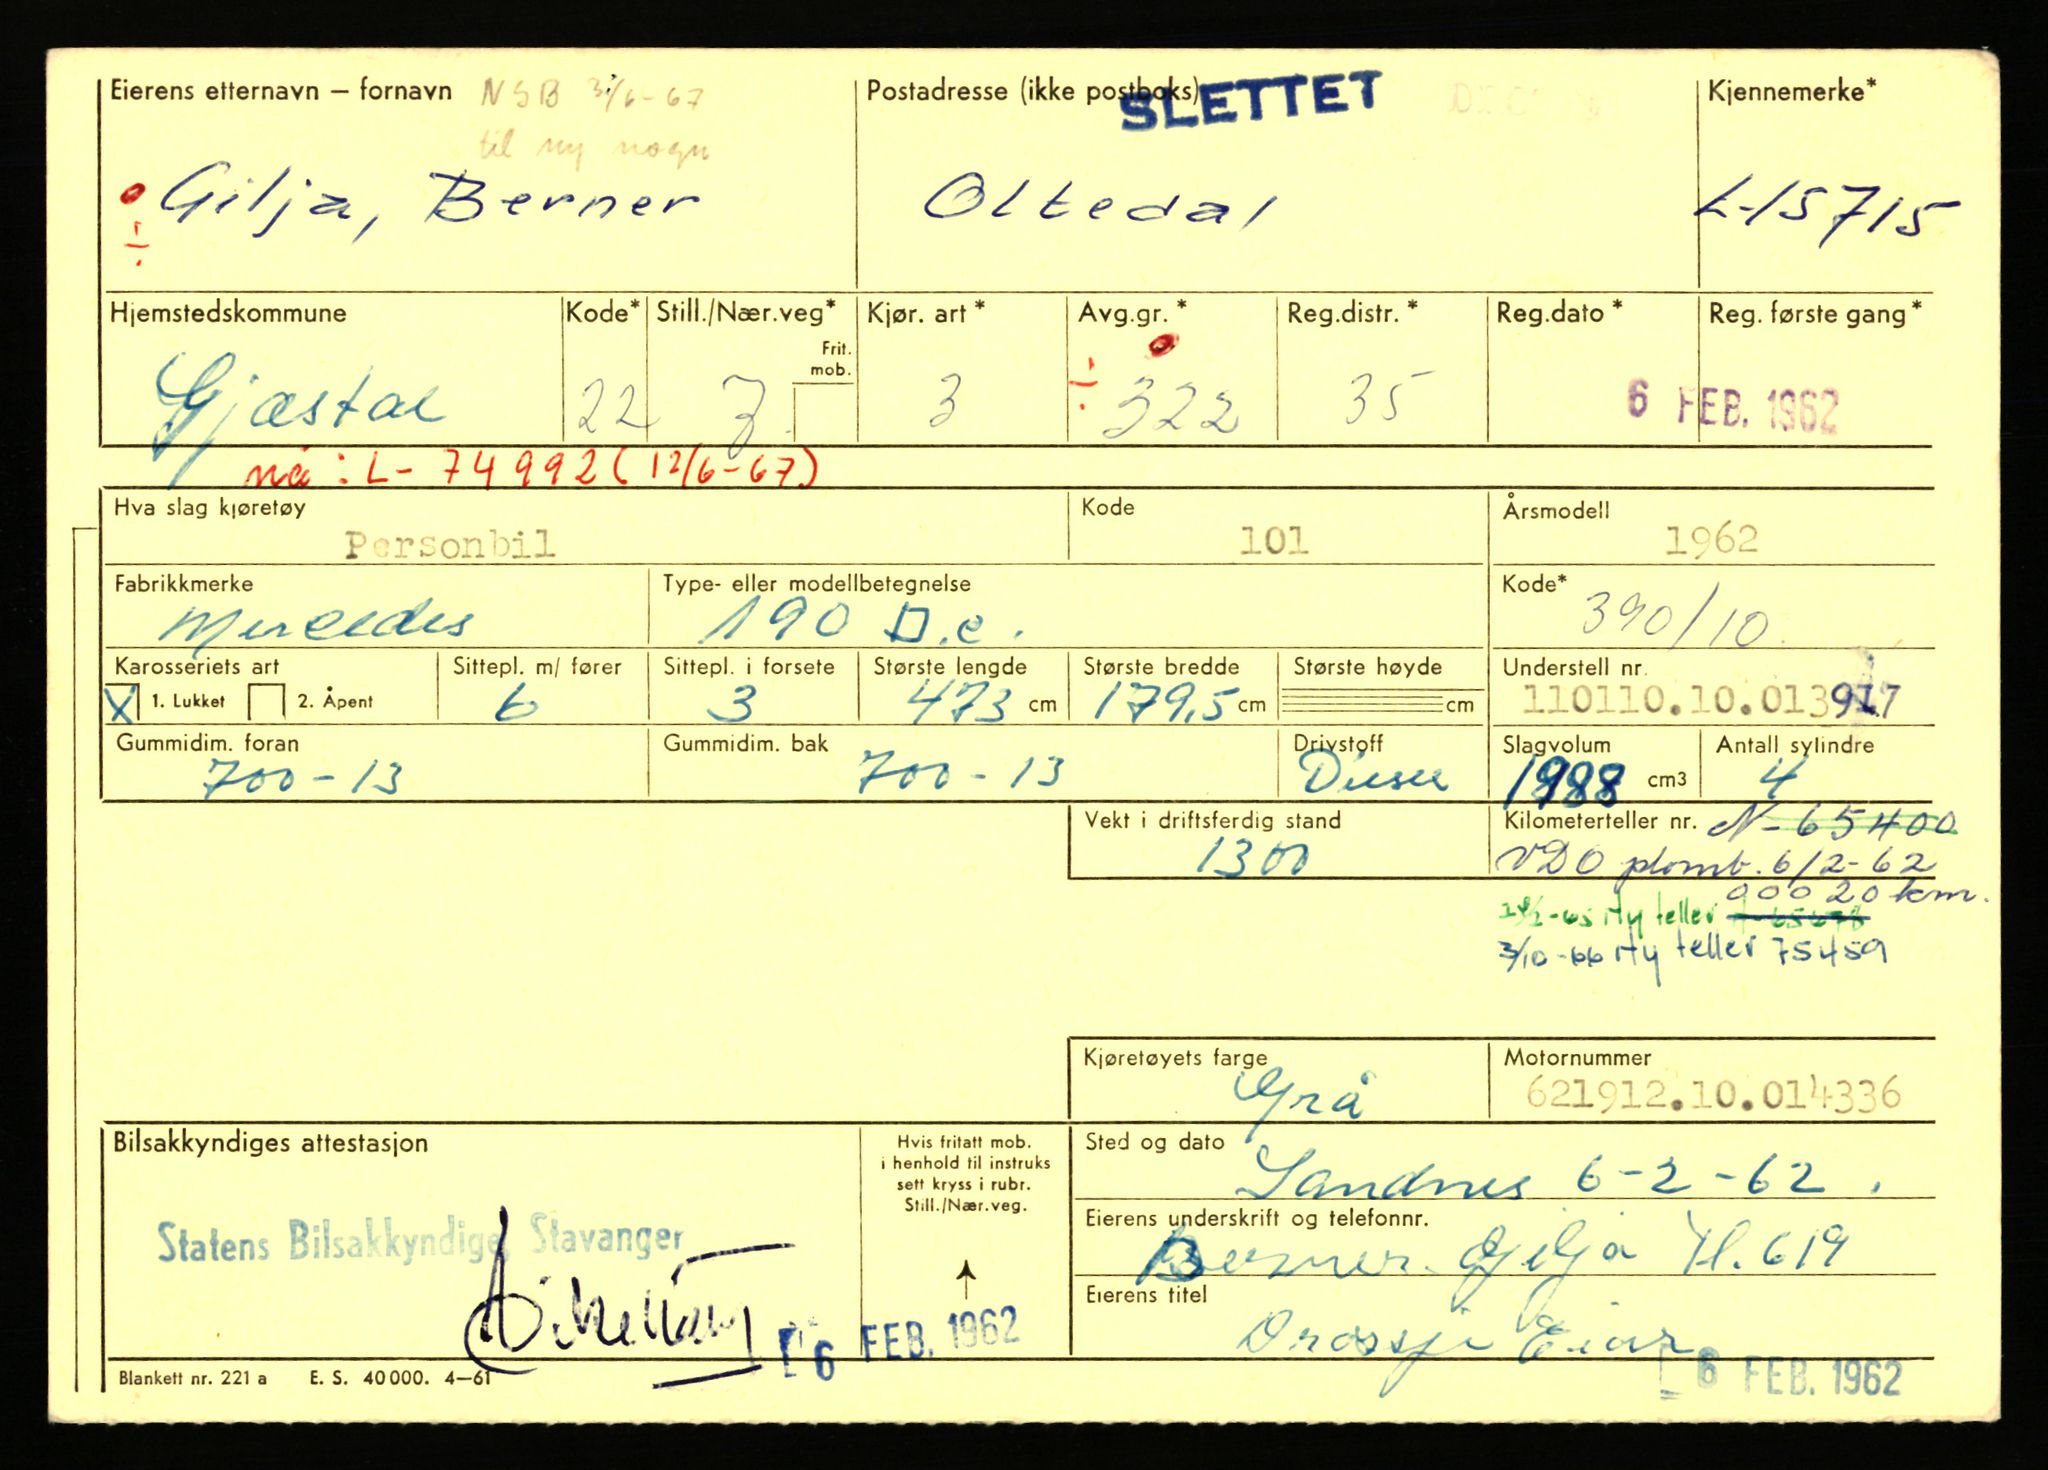 Eierens etternavn – fornavn NSB 3/6-67 Postadresse (ikke postboks) SLETTET Kjennemerke*
til ny vogn
Gilja, Berner Oltedal L-15715
Hjemstedskommune Kode* Still./Nær.veg* Kjør. art* Avg.gr.* Reg.distr.* Reg.dato* Reg. første gang*
Frit. mob.
Gjæstal 22 7 3 ÷ 322 35 6 FEB. 1962
nå: L- 74992 (12/6-67)
Hva slag kjøretøy Kode Årsmodell
Personbil 101 1962
Fabrikkmerke Type- eller modellbetegnelse Kode*
Mercedes 190 D.c. 390/10
Karosseriets art Sittepl. m/ fører Sittepl. i forsete Største lengde Største bredde Største høyde Understell nr.
X 1. Lukket 2. Åpent 6 3 473 cm 179,5 cm cm 110110.10.013917
Gummidim. foran Gummidim. bak Drivstoff Slagvolum Antall sylindre
700-13 700-13 Diesel 1988 cm3 4
Vekt i driftsferdig stand Kilometerteller nr. N-65400
1300 VDO plomb. 6/2-62
00020 km.
Ny teller
3/10-66 Ny teller 75459
Kjøretøyets farge Motornummer
Grå 621912.10.014336
Bilsakkyndiges attestasjon Hvis fritatt mob. Sted og dato
i henhold til instruks
sett kryss i rubr.
Still./Nær.veg.
Sandnes 6-2-62.
Eierens underskrift og telefonnr.
Statens Bilsakkyndige, Stavanger Berner Gilja tl. 619
Eierens titel
Drossje Eier
6 FEB. 1962
6 FEB. 1962
Blankett nr. 221 a E. S. 40 000. 4–61